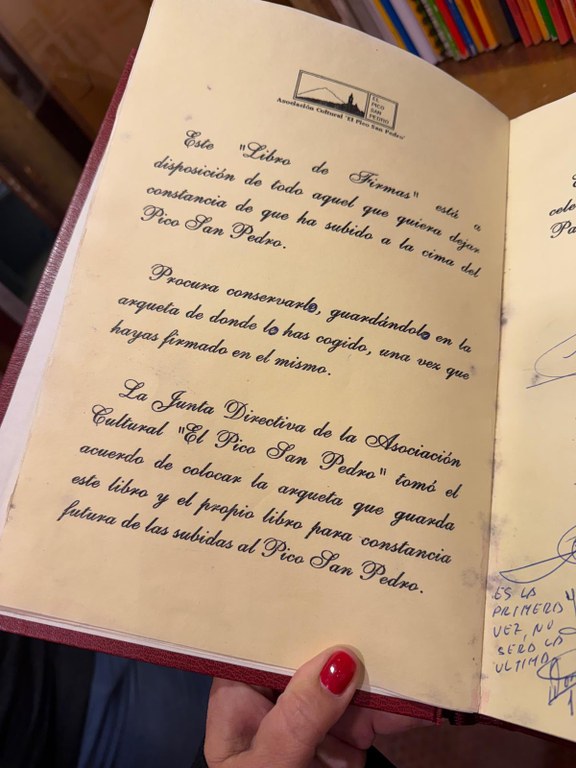 EL
PICO
SAN
PEDRO
Asociación Cultural 'El Pico San Pedro'
Este "Libro de Firmas" está a
disposición de todo aquel que quiera dejar
constancia de que ha subido a la cima del
Pico San Pedro.
Procura conservarlo, guardándolo en la
arqueta de donde lo has cogido, una vez que
hayas firmado en el mismo.
La Junta Directiva de la Asociación
Cultural "El Pico San Pedro" tomó el
acuerdo de colocar la arqueta que guarda
este libro y el propio libro para constancia
futura de las subidas al Pico San Pedro.
cele
Pa
ES LA
PRIMERA
VEZ, NO
SERA LA
ULTIMA